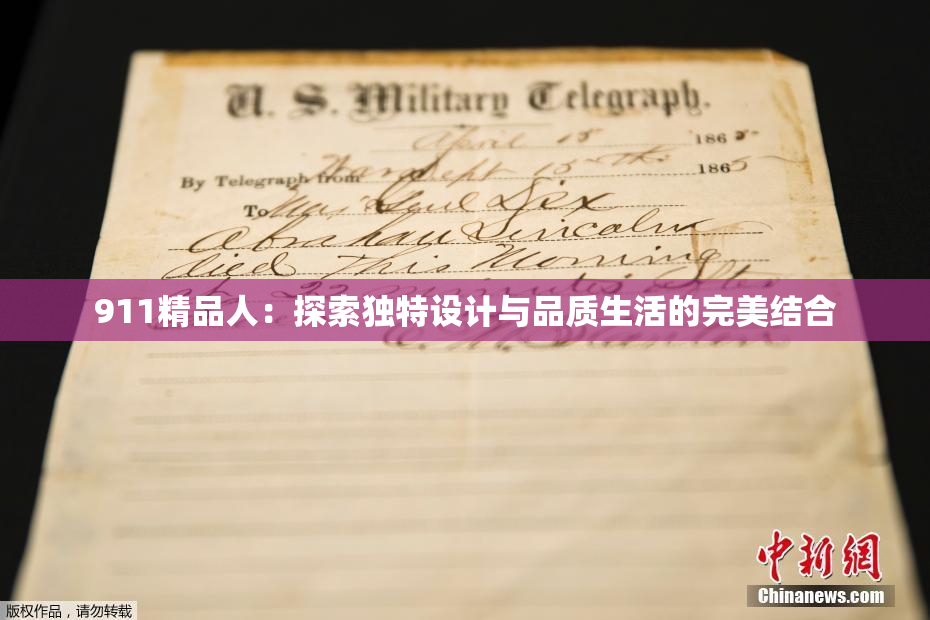 U. S. Military Telegraph.
April 15 1865
By Telegraph from War Dept 15th 1865
To Maj Genl Dix
Abraham Lincoln
died This Morning
at 22 minutes after
911精品人：探索独特设计与品质生活的完美结合
E. M. Stanton
中新网
Chinanews.com
版权作品，请勿转载